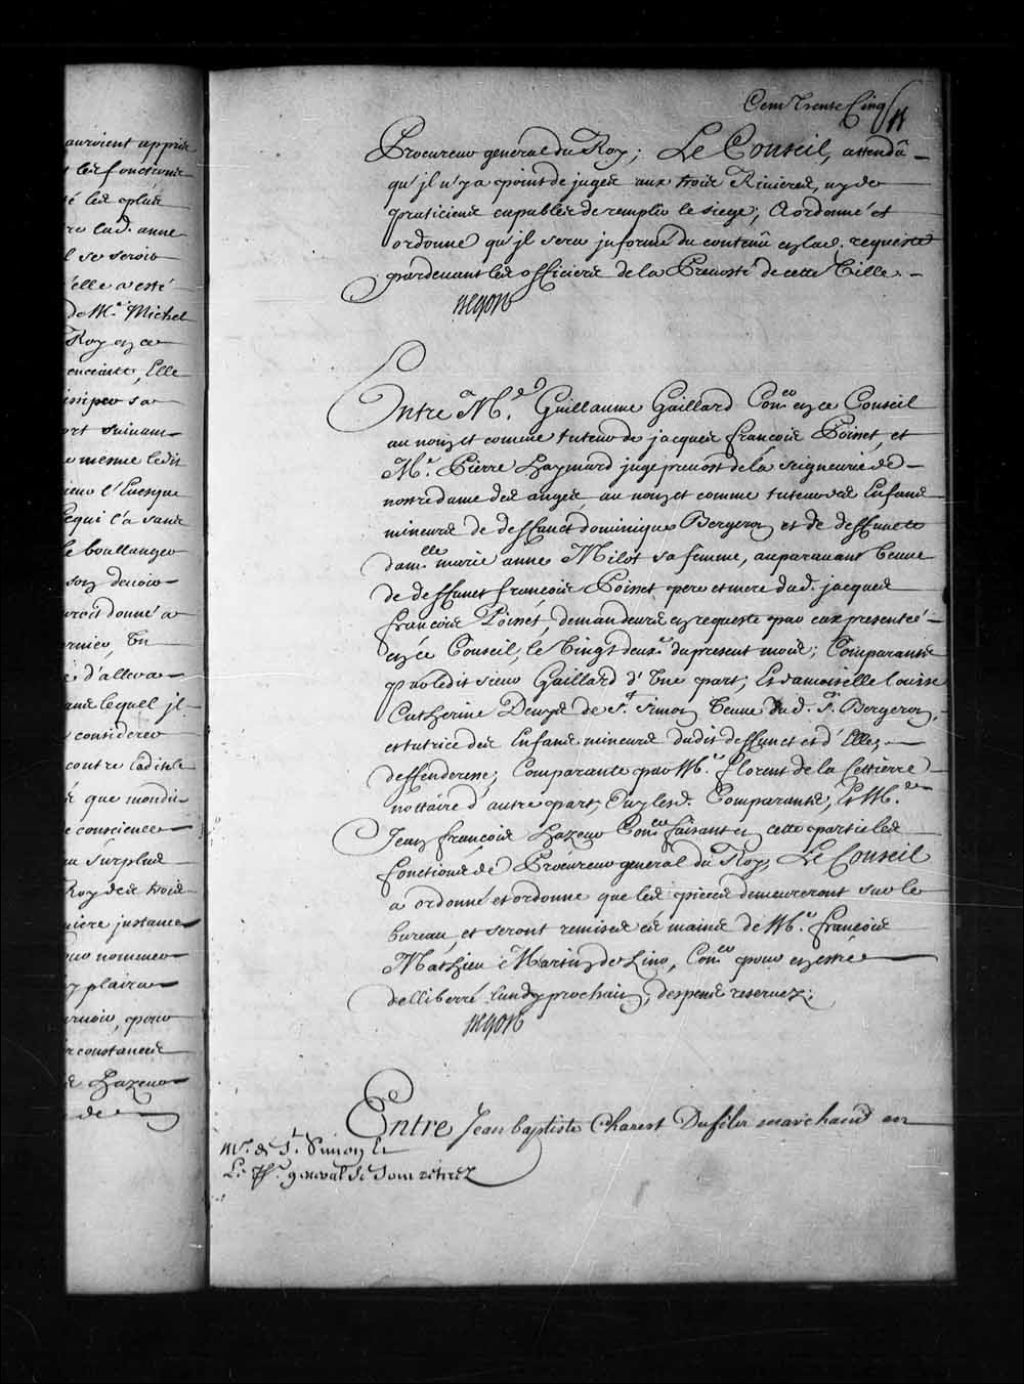 auroient appris
t les fonctions
é les plus
re lad. anne
l se seroit
elle a esté
de Me. Michel
Roy en ce
enceinte, Elle
ort suivant
e mesme ledit
ieur l'Evesque
equi l'a sans
le boullanger
son devoir
uroit donné a
d'alleva
ans lequel jl
considerer
contre ladite
que mondit
conscience
au surplus
Roy des trois
miere justance
our nommer
y plaira
pour
rconstances
Hazeur
de
Cent Trente Cinq
Procureur general du Roy; Le Conseil, attendu
qu'jl n'y a point de juges aux trois Rivieres, ny de
praticiens capables de remplir le siege; A ordonné et
ordonne qu'jl sera jnformé du contenu en lad. requeste
pardevant les officiers de la Prevosté de cette Ville.
Begon
Entre Me. Guillaume Gaillard Coner en ce Conseil
au nom et comme tuteur de jacques françois Poisset, et
Me. Pierre Haymard juge prevost de la seigneurie de
nostredame des anges, au nom et comme tuteur des Enfans
mineurs de deffunct dominique Bergeron et de deffuncte
damlle. marie anne Milot sa femme, auparavant Veuve
de deffunct françois Poisset pere et mere dud. jacques
françois Poisset, demandeurs en requeste par eux presentée
en ce Conseil, le Vingt deuxe. du present mois; Comparants
par ledit sieur Gaillard d'Une part; Et damoiselle louise
Catherine Denys de St. Simon Veuve dud. Sr. Bergeron,
et tutrice des Enfans mineurs dudit deffunct et d'Elle,
deffenderesse; Comparante par Me. florent de la Cettierre
nottaire d'autre part; Ouy lesd. Comparants, Et Me.
Jean françois Hazeur Coner faisant en cette partie les
fonctions de Procureur general du Roy, Le Conseil
a ordonné et ordonne que les pieces demeureront sur le
bureau, et seront remises es mains de Me. françois
Mathieu Martin de Lino, Coner pour en estre
delliberré lundy prochain, despens reservez;
Begon
Entre Jean baptiste Charest Dufils marchand en
Mr. de St. Simon Et
Le Pr. general se sont retirez